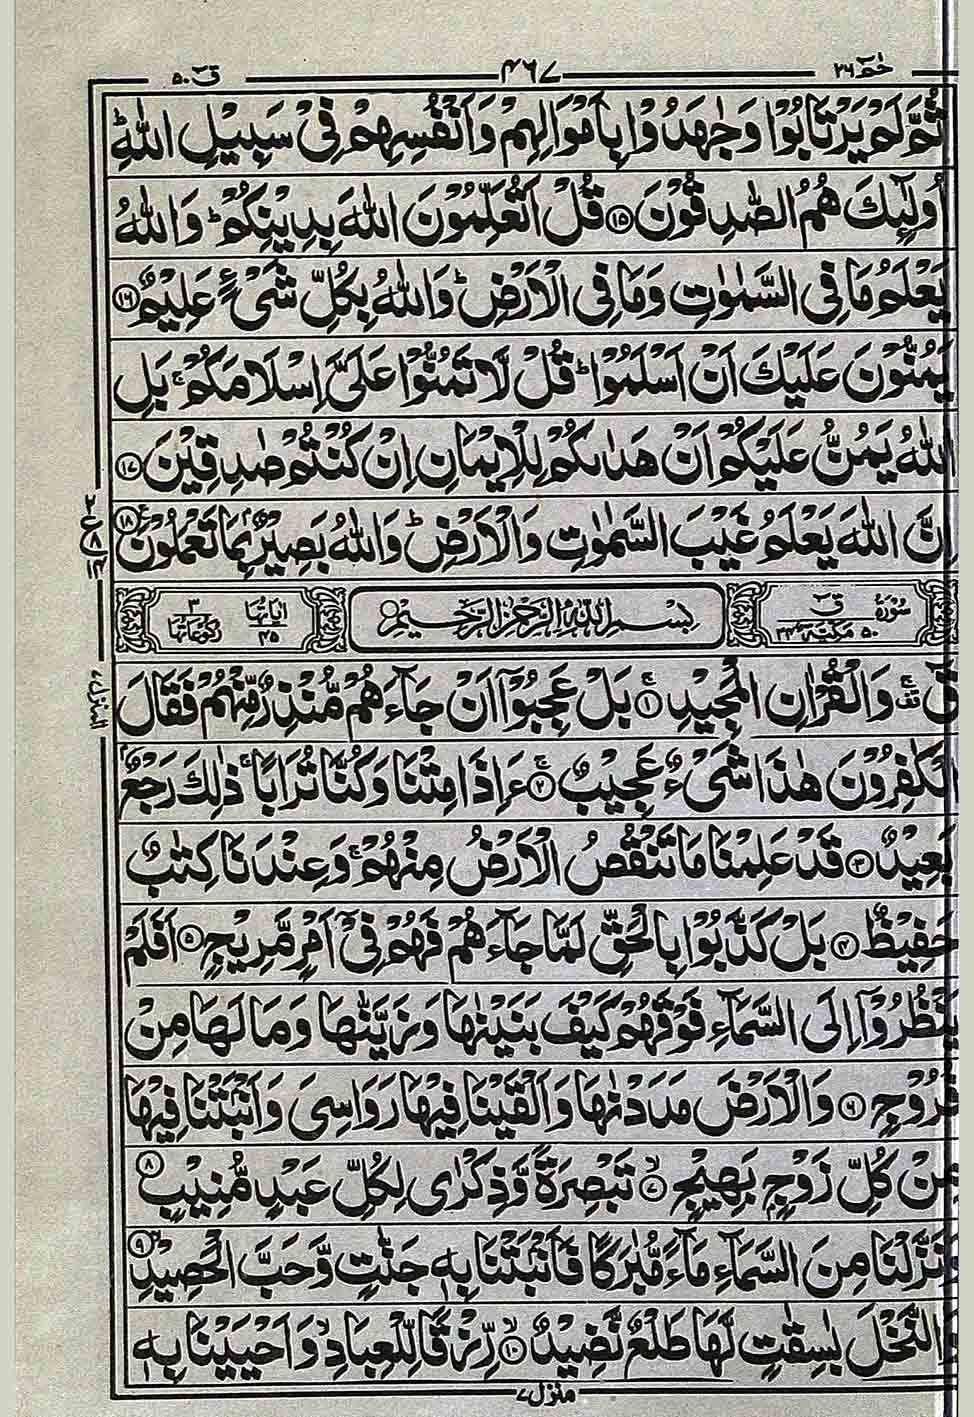 حٰمٓ ۲۶ ۴۶۷ قٓ ۵۰
ثُمَّ لَمْ يَرْتَابُوْا وَجٰهَدُوْا بِاَمْوَالِهِمْ وَاَنْفُسِهِمْ فِیْ سَبِيْلِ اللّٰهِ ؕ
اُولٰٓئِكَ هُمُ الصّٰدِقُوْنَ ۱۵ قُلْ اَتُعَلِّمُوْنَ اللّٰهَ بِدِيْنِكُمْ ؕ وَاللّٰهُ
يَعْلَمُ مَا فِی السَّمٰوٰتِ وَمَا فِی الْاَرْضِ ؕ وَاللّٰهُ بِكُلِّ شَیْءٍ عَلِيْمٌ ۱۶
يَمُنُّوْنَ عَلَيْكَ اَنْ اَسْلَمُوْا ؕ قُلْ لَّا تَمُنُّوْا عَلَیَّ اِسْلَامَكُمْ ۚ بَلِ
اللّٰهُ يَمُنُّ عَلَيْكُمْ اَنْ هَدٰىكُمْ لِلْاِيْمَانِ اِنْ كُنْتُمْ صٰدِقِيْنَ ۱۷
اِنَّ اللّٰهَ يَعْلَمُ غَيْبَ السَّمٰوٰتِ وَالْاَرْضِ ؕ وَاللّٰهُ بَصِيْرٌۢ بِمَا تَعْمَلُوْنَ ۱۸
سُوْرَةُ قٓ ۵۰ مَكِّيَّةٌ ۳۴ بِسْمِ اللّٰهِ الرَّحْمٰنِ الرَّحِيْمِ اٰيَاتُهَا ۴۵ رُكُوْعَاتُهَا ۳
قٓ ۚ وَالْقُرْاٰنِ الْمَجِيْدِ ۚ ۱ بَلْ عَجِبُوْۤا اَنْ جَآءَهُمْ مُّنْذِرٌ مِّنْهُمْ فَقَالَ
الْكٰفِرُوْنَ هٰذَا شَیْءٌ عَجِيْبٌ ۚ ۲ ءَاِذَا مِتْنَا وَكُنَّا تُرَابًا ۚ ذٰلِكَ رَجْعٌۢ
بَعِيْدٌ ۳ قَدْ عَلِمْنَا مَا تَنْقُصُ الْاَرْضُ مِنْهُمْ ۚ وَعِنْدَنَا كِتٰبٌ
حَفِيْظٌ ۴ بَلْ كَذَّبُوْا بِالْحَقِّ لَمَّا جَآءَهُمْ فَهُمْ فِیْۤ اَمْرٍ مَّرِيْجٍ ۵ اَفَلَمْ
يَنْظُرُوْۤا اِلَى السَّمَآءِ فَوْقَهُمْ كَيْفَ بَنَيْنٰهَا وَزَيَّنّٰهَا وَمَا لَهَا مِنْ
فُرُوْجٍ ۶ وَالْاَرْضَ مَدَدْنٰهَا وَاَلْقَيْنَا فِيْهَا رَوَاسِیَ وَاَنْۢبَتْنَا فِيْهَا
مِنْ كُلِّ زَوْجٍۭ بَهِيْجٍ ۙ ۷ تَبْصِرَةً وَّذِكْرٰى لِكُلِّ عَبْدٍ مُّنِيْبٍ ۸
وَنَزَّلْنَا مِنَ السَّمَآءِ مَآءً مُّبٰرَكًا فَاَنْۢبَتْنَا بِهٖ جَنّٰتٍ وَّحَبَّ الْحَصِيْدِ ۙ ۹
وَالنَّخْلَ بٰسِقٰتٍ لَّهَا طَلْعٌ نَّضِيْدٌ ۙ ۱۰ رِّزْقًا لِّلْعِبَادِ ۙ وَاَحْيَيْنَا بِهٖ
منزل ۷